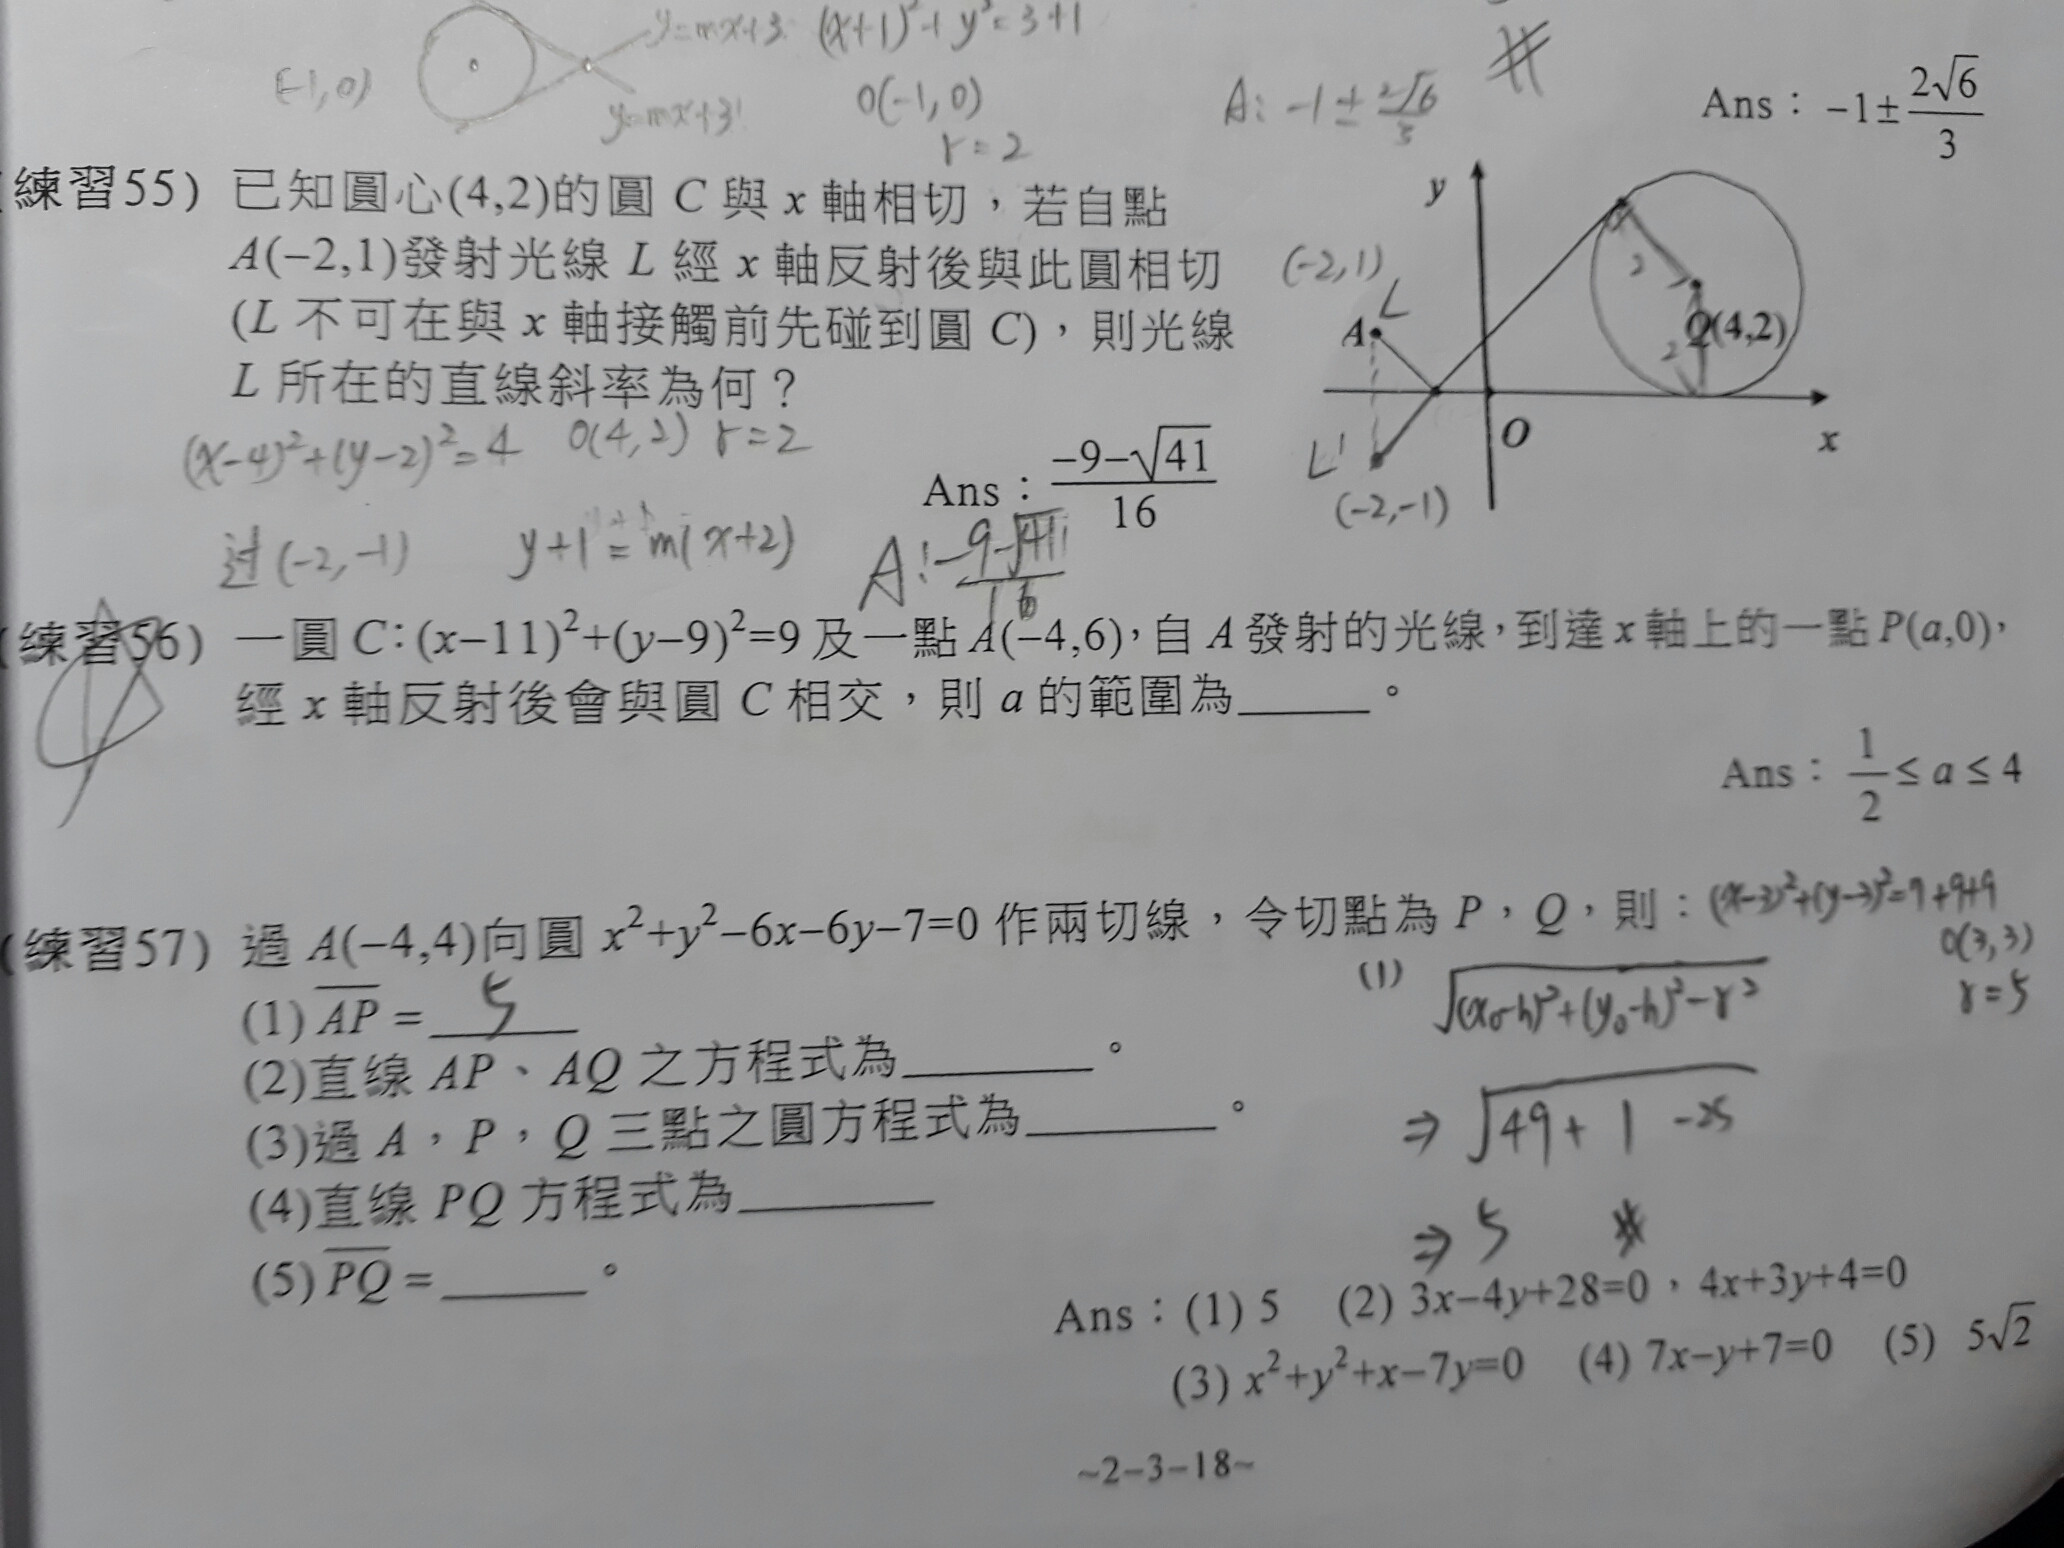 y=mx+3 (x+1)²+y²=3+1
(-1,0)
y=mx+3
O(-1,0)
r=2
A: -1±2√6/3
Ans：-1±2√6/3
(練習55) 已知圓心(4,2)的圓 C 與 x 軸相切，若自點
A(−2,1)發射光線 L 經 x 軸反射後與此圓相切
(L 不可在與 x 軸接觸前先碰到圓 C)，則光線
L 所在的直線斜率為何？
y
(-2,1)
L
A
2
Q(4,2)
2
O
x
L'
(-2,-1)
(x-4)²+(y-2)²=4 O(4,2) r=2
Ans：(−9−√41)/16
过(-2,-1) y+1=m(x+2)
A: (-9-√41)/16
(練習56) 一圓 C：(x−11)²+(y−9)²=9 及一點 A(−4,6)，自 A 發射的光線，到達 x 軸上的一點 P(a,0)，
經 x 軸反射後會與圓 C 相交，則 a 的範圍為______。
Ans：1/2 ≤ a ≤ 4
(練習57) 過 A(−4,4)向圓 x²+y²−6x−6y−7=0 作兩切線，令切點為 P，Q，則：
(x-3)²+(y-3)²=7+9+9
O(3,3)
r=5
(1) AP = 5
(1) √(x₀-h)²+(y₀-h)²-r²
(2)直線 AP、AQ 之方程式為________。
(3)過 A，P，Q 三點之圓方程式為________。
⇒ √49+1-25
(4)直線 PQ 方程式為________
⇒ 5 #
(5) PQ = ______。
Ans：(1) 5 (2) 3x−4y+28=0，4x+3y+4=0
(3) x²+y²+x−7y=0 (4) 7x−y+7=0 (5) 5√2
~2−3−18~